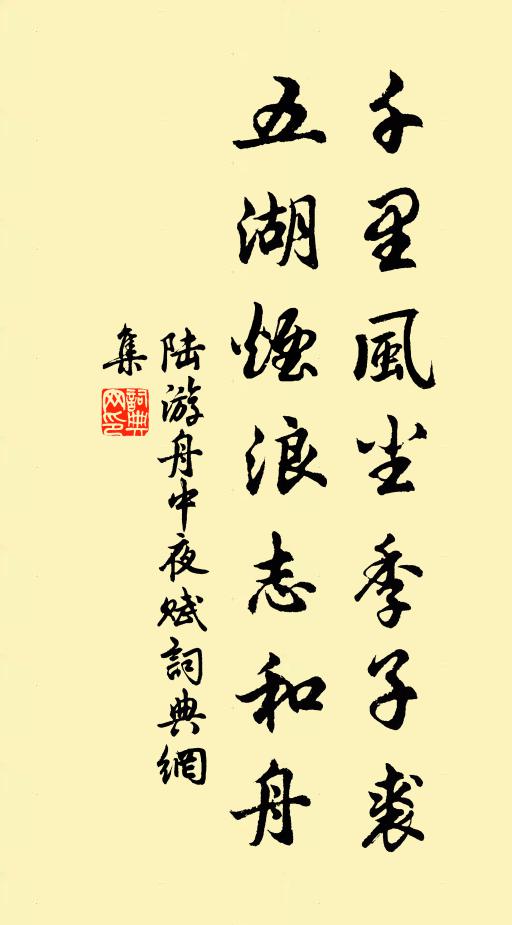 千里風尘季子裘
五湖煙浪志和舟
陆游舟中夜赋詞典網
集
詞典
网印